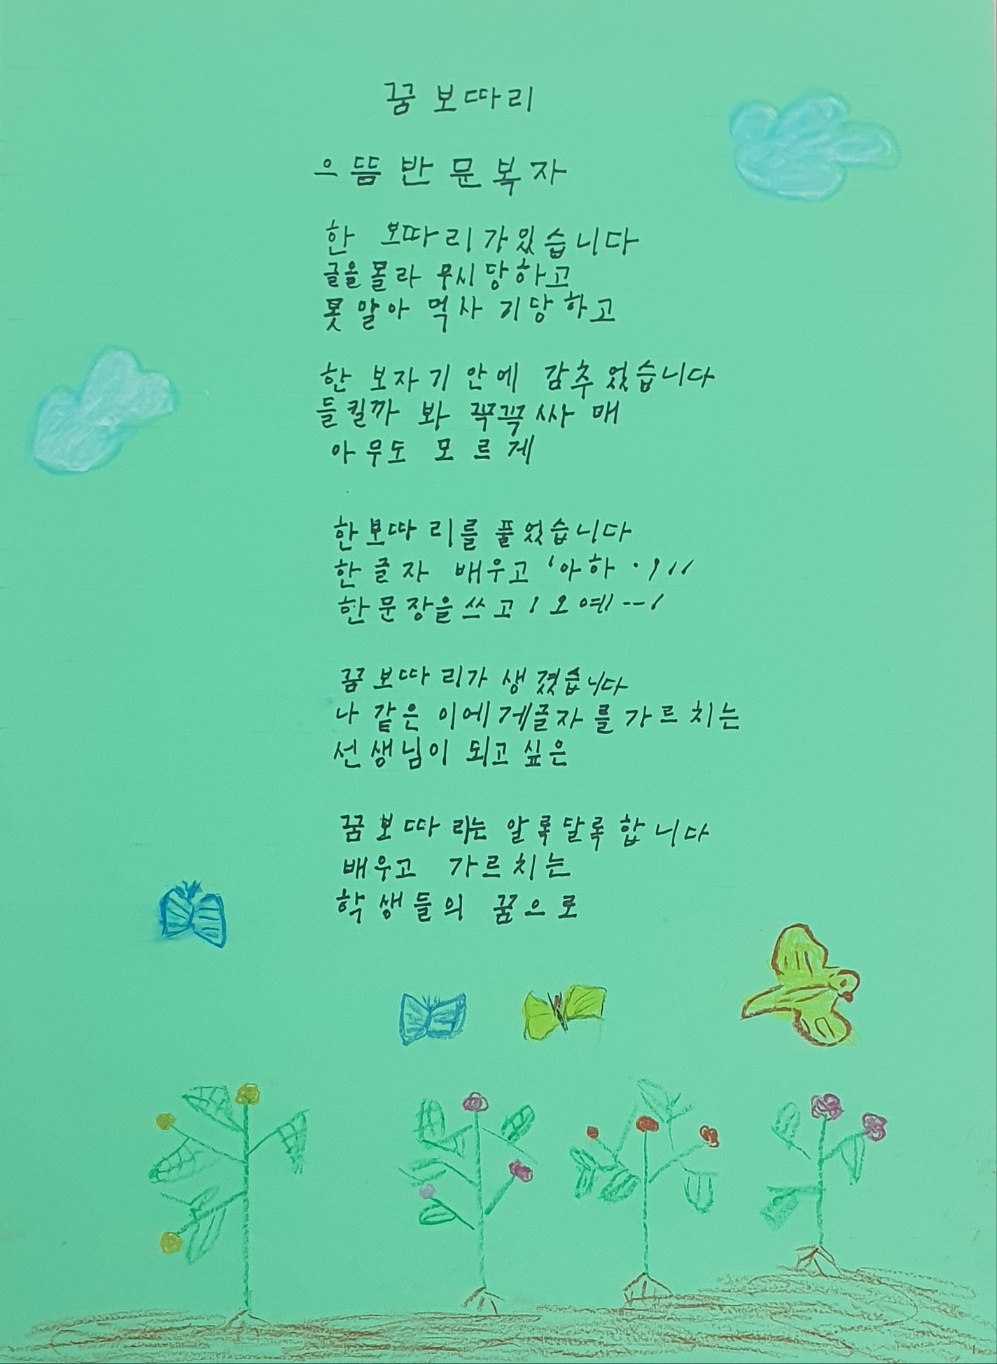 꿈 보따리
으뜸반 문복자
한 보따리가있습니다
글을몰라 무시당하고
못알아 먹사 기당하고
한 보자기 안에 감추었습니다
들킬까 봐 꼭꼭싸 매
아무도 모르게
한보따리를 풀었습니다
한글자 배우고 '아하·!'//
한문장을쓰고 ! 오예--!
꿈보따리가 생겼습니다
나 같은 이에게글자를가르치는
선생님이 되고싶은
꿈보따리는 알록달록합니다
배우고 가르치는
학생들의 꿈으로